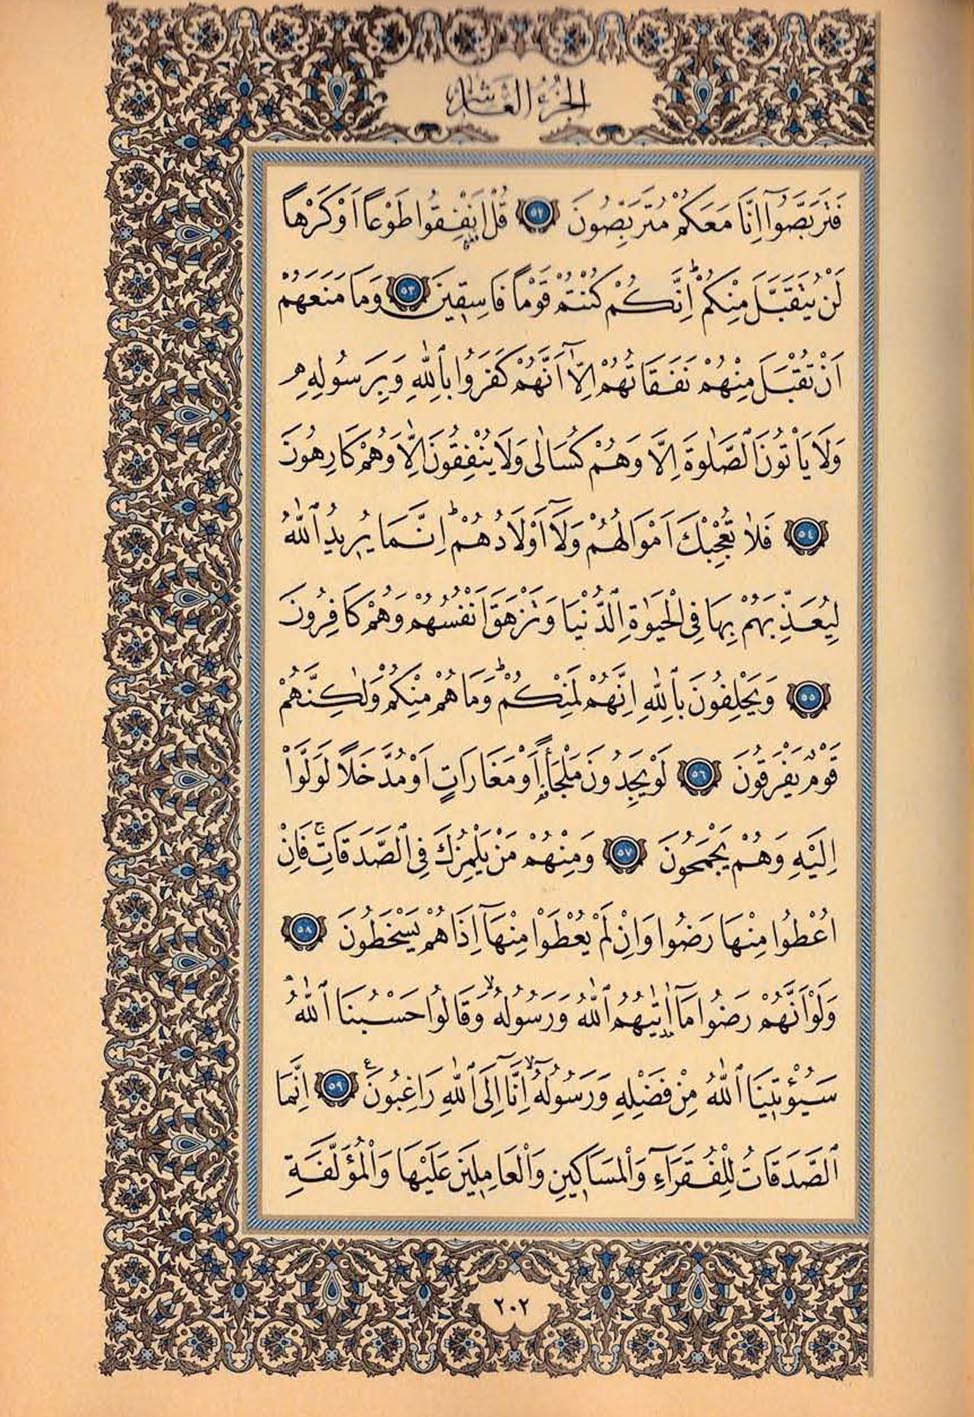 الجزء العاشر
فَتَرَبَّصُٓوا اِنَّا مَعَكُمْ مُتَرَبِّصُونَ ﴿٥٢﴾ قُلْ اَنْفِقُوا طَوْعاً اَوْ كَرْهاً
لَنْ يُتَقَبَّلَ مِنْكُمْۜ اِنَّكُمْ كُنْتُمْ قَوْماً فَاسِقٖينَ ﴿٥٣﴾ وَمَا مَنَعَهُمْ
اَنْ تُقْبَلَ مِنْهُمْ نَفَقَاتُهُمْ اِلَّٓا اَنَّهُمْ كَفَرُوا بِاللّٰهِ وَبِرَسُولِهٖ
وَلَا يَأْتُونَ الصَّلٰوةَ اِلَّا وَهُمْ كُسَالٰى وَلَا يُنْفِقُونَ اِلَّا وَهُمْ كَارِهُونَ
﴿٥٤﴾ فَلَا تُعْجِبْكَ اَمْوَالُهُمْ وَلَٓا اَوْلَادُهُمْۜ اِنَّمَا يُرٖيدُ اللّٰهُ
لِيُعَذِّبَهُمْ بِهَا فِي الْحَيٰوةِ الدُّنْيَا وَتَزْهَقَ اَنْفُسُهُمْ وَهُمْ كَافِرُونَ
﴿٥٥﴾ وَيَحْلِفُونَ بِاللّٰهِ اِنَّهُمْ لَمِنْكُمْۜ وَمَا هُمْ مِنْكُمْ وَلٰكِنَّهُمْ
قَوْمٌ يَفْرَقُونَ ﴿٥٦﴾ لَوْ يَجِدُونَ مَلْجَـٔاً اَوْ مَغَارَاتٍ اَوْ مُدَّخَلاً لَوَلَّوْا
اِلَيْهِ وَهُمْ يَجْمَحُونَ ﴿٥٧﴾ وَمِنْهُمْ مَنْ يَلْمِزُكَ فِي الصَّدَقَاتِۚ فَاِنْ
اُعْطُوا مِنْهَا رَضُوا وَاِنْ لَمْ يُعْطَوْا مِنْهَٓا اِذَا هُمْ يَسْخَطُونَ ﴿٥٨﴾
وَلَوْ اَنَّهُمْ رَضُوا مَٓا اٰتٰيهُمُ اللّٰهُ وَرَسُولُهُۙ وَقَالُوا حَسْبُنَا اللّٰهُ
سَيُؤْتٖينَا اللّٰهُ مِنْ فَضْلِهٖ وَرَسُولُهُٓۙ اِنَّٓا اِلَى اللّٰهِ رَاغِبُونَ۟ ﴿٥٩﴾ اِنَّمَا
الصَّدَقَاتُ لِلْفُقَرَٓاءِ وَالْمَسَاكٖينِ وَالْعَامِلٖينَ عَلَيْهَا وَالْمُؤَلَّفَةِ
٢٠٢